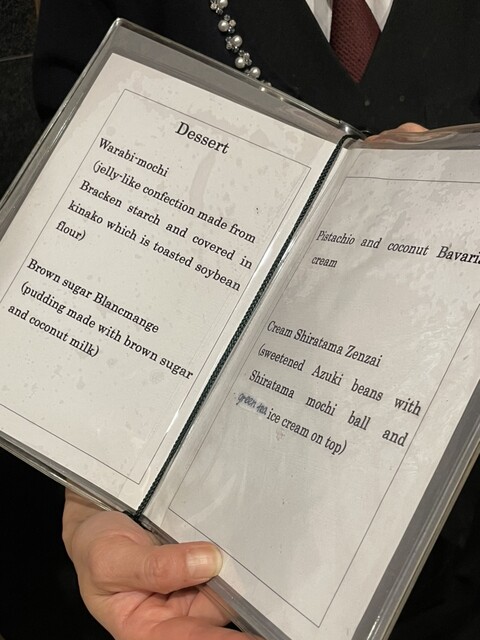 Dessert
Warabi-mochi
(jelly-like confection made from
Bracken starch and covered in
kinako which is toasted soybean
flour)
Brown sugar Blancmange
(pudding made with brown sugar
and coconut milk)
Pistachio and coconut Bavari
cream
Cream Shiratama Zenzai
(sweetened Azuki beans with
Shiratama mochi ball and
green tea ice cream on top)